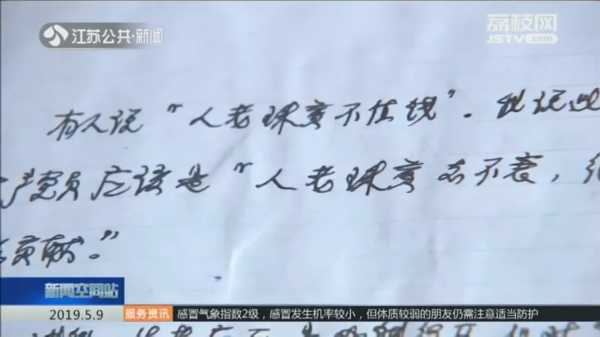 江苏公共·新闻
荔枝网
JSTV.com
有人说“人老珠黄不值钱”。我说
产党员应该是“人老珠黄志不衰,
贡献。”
新闻空间站
2019.5.9
服务资讯
感冒气象指数2级，感冒发生机率较小，但体质较弱的朋友仍需注意适当防护